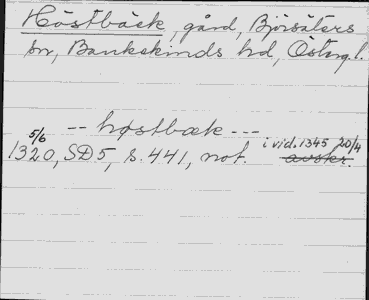 Höstbäck, gård, Björsäters
sn, Bankekinds hd, Östergl.
-- høstbæk ---
5/6 i vid. 1345 20/4
1320, SD 5, s. 441, not. avskr.